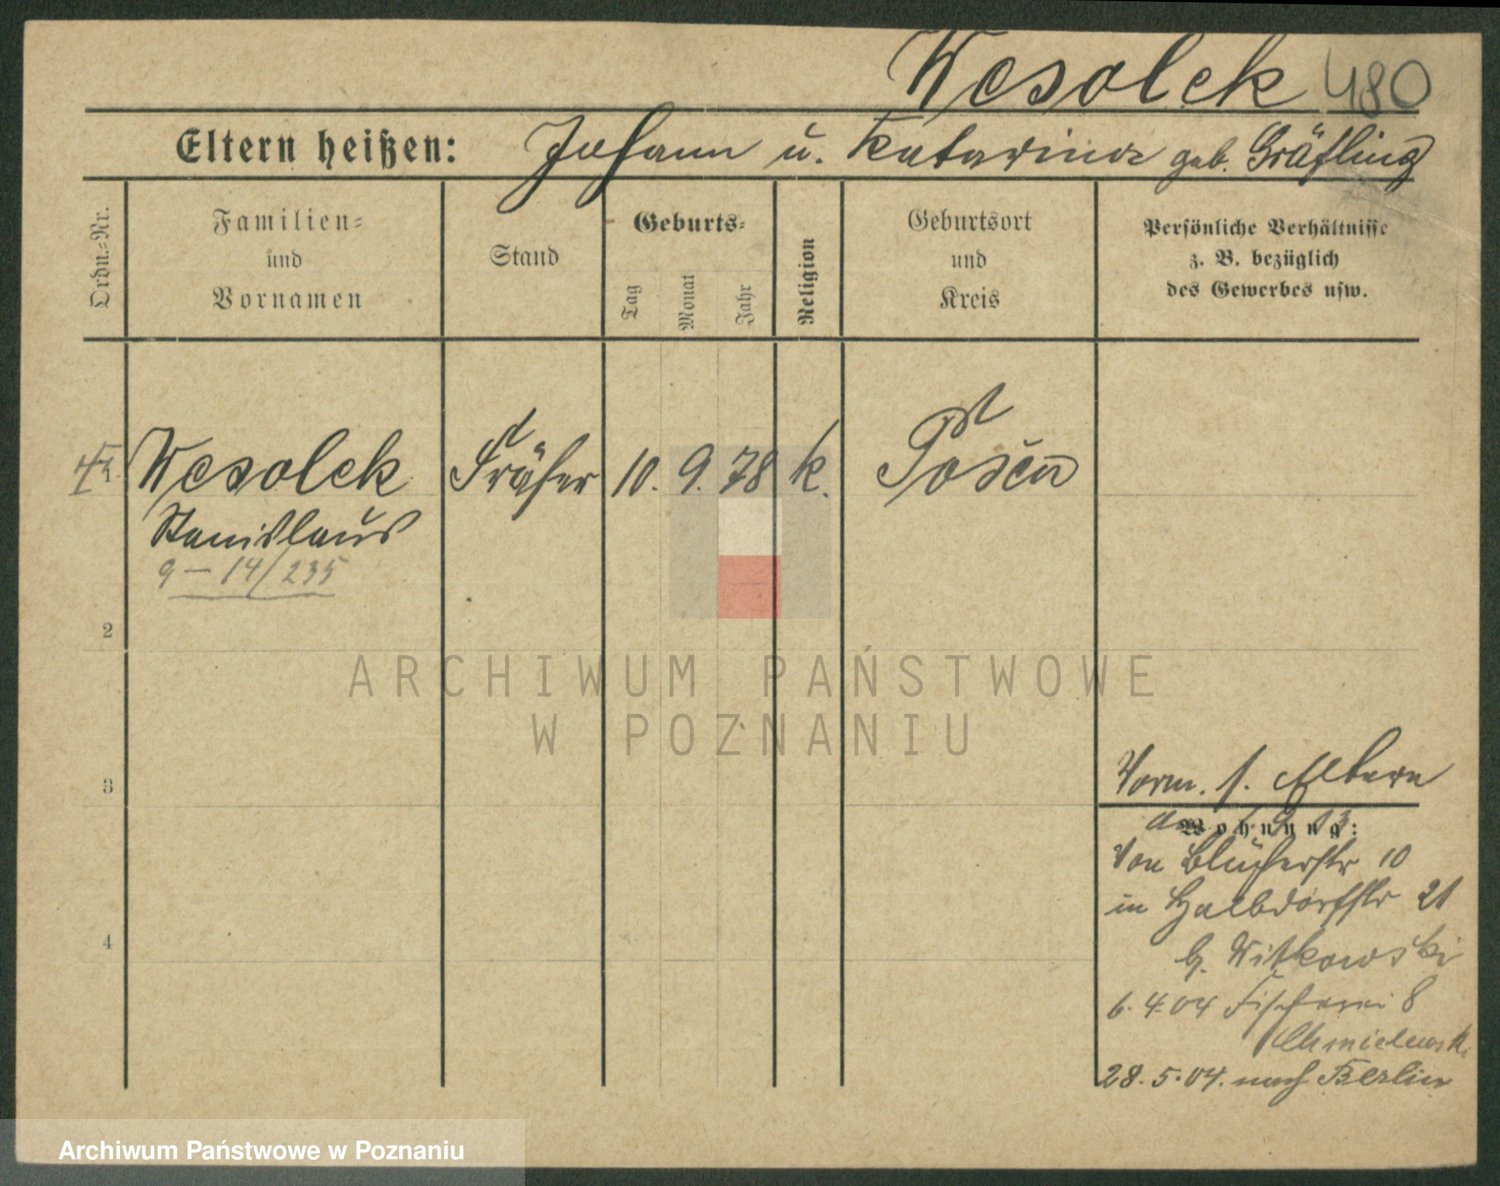 Wesolek 480
Eltern heißen: Johann u. Katarina geb. Gräfling
Ordn.-Nr.
Familien-
und
Vornamen
Stand
Geburts-
Tag
Monat
Jahr
Religion
Geburtsort
und
Kreis
Persönliche Verhältnisse
z. B. bezüglich
des Gewerbes usw.
Wesolek 10. 9. 78 k. Posen
Stanislaus
9 — 14/235
2
3
4
Vorm. s. Eltern
Wohnung:
Von Blücherstr 10
in Halbdorfstr 21
b. Witkowski
6. 4. 04 Fischerei 8
Chmielewski
28. 5. 04. nach Berlin
ARCHIWUM PAŃSTWOWE
W POZNANIU
Archiwum Państwowe w Poznaniu